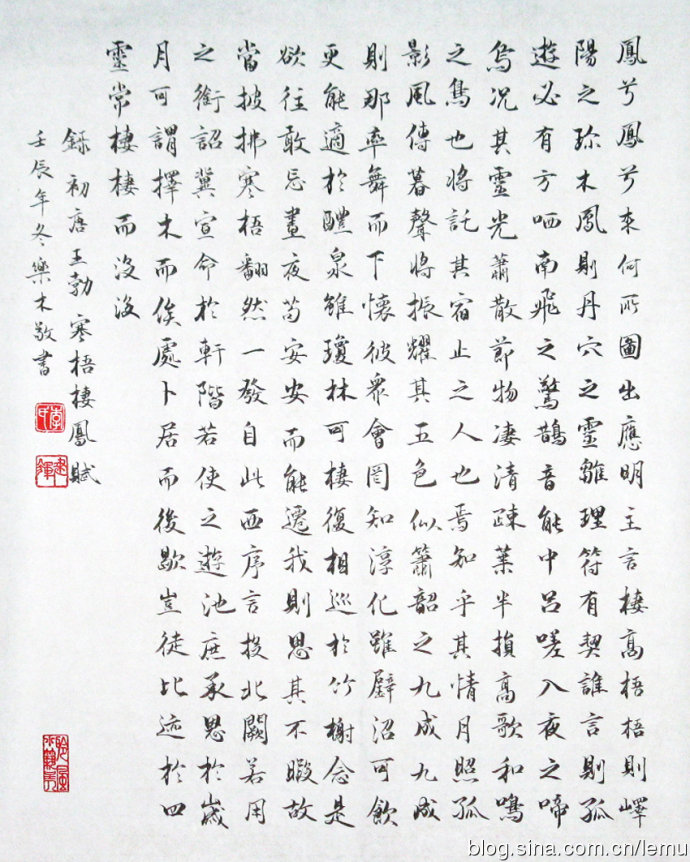 鳳兮鳳兮來何所圖出應明主言棲高梧梧則嶧
陽之珍木鳳則丹穴之靈雛理符有契誰言則孤
遊必有方哂南飛之驚鵲音能中呂嗟入夜之啼
烏況其靈光蕭散節物凄清疎葉半損高歌和鳴
之鳥也將託其宿止之人也焉知乎其情月照孤
影風傳暮聲將振耀其五色似簫韶之九成九成
則那率舞而下懷彼眾會罔知淳化雖璧沼可飲
更能適於醴泉雖瓊林可棲復相巡於竹榭念是
欲往敢忘晝夜苟安安而能遷我則思其不暇故
當披拂寒梧翻然一發自此西序言投北闕若用
之銜詔冀宣命於軒階若使之遊池庶承恩於歲
月可謂擇木而俟處卜居而後歇豈徒比迹於四
靈常棲棲而沒沒
錄初唐王勃寒梧棲鳳賦
壬辰年冬樂木敬書
blog.sina.com.cn/lemu